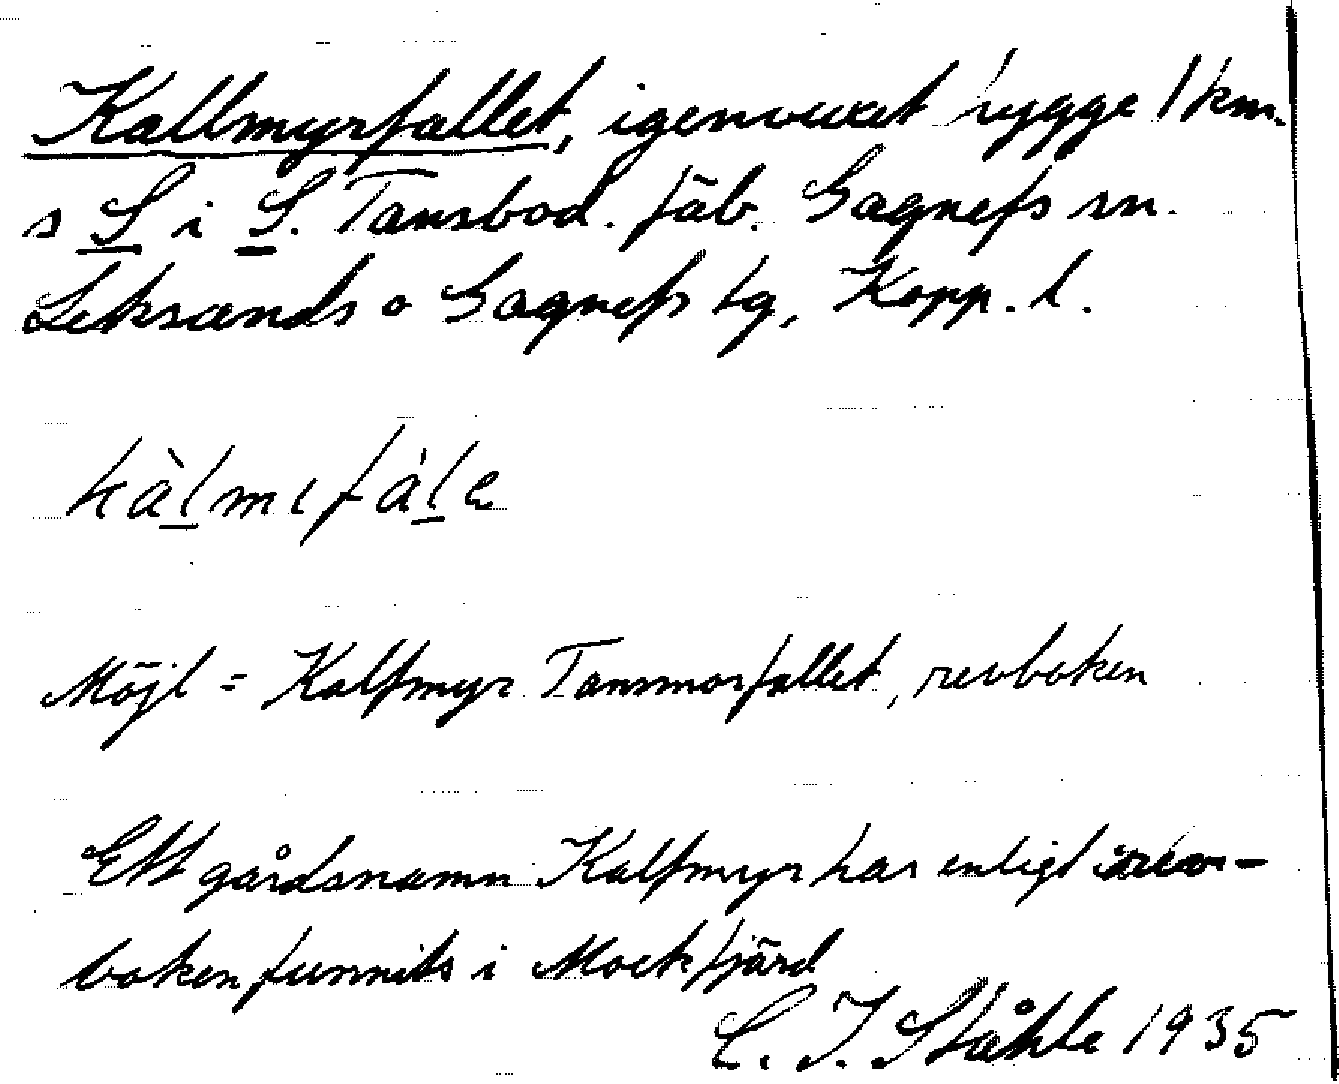 Kallmyrfallet, igenvuxet hygge 1 km.
s S i S. Tansbod. fäb. Gagnefs sn.
Leksands o Gagnefs tg, Kopp. l.
kàlmɩfále
Möjl = Kalfmyr Tansmorfallet, revboken
Ett gårdsnamn Kalfmyr har enligt
boken funnits i Mockfjärd
C. I. Ståhle 1935